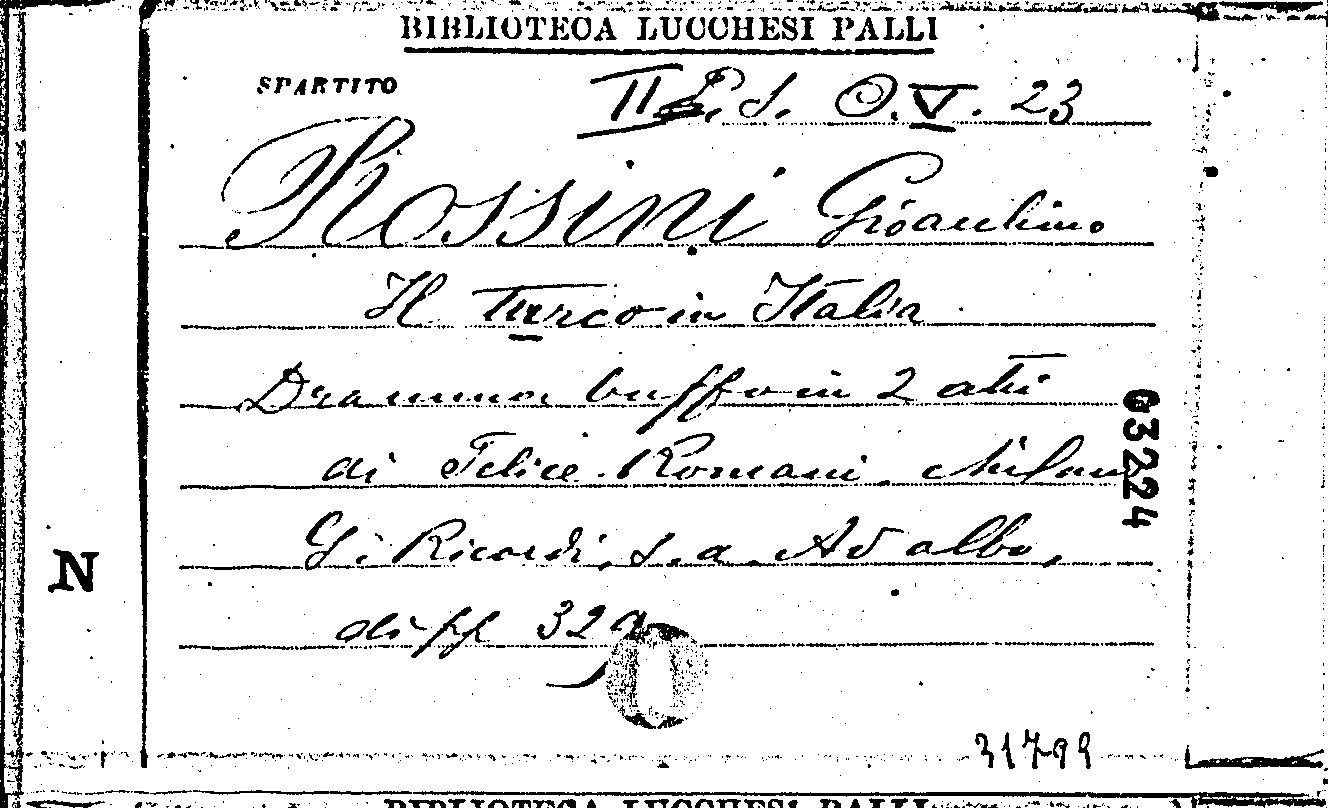 BIBLIOTECA LUCCHESI PALLI
SPARTITO
II S. O. V. 23
Rossini Gioachino
Il turco in Italia
Dramma buffo in 2 atti
di Felice Romani. Milano
G. Ricordi, s. a. Ad albo,
di pp 329
63224
N
31799
BIBLIOTECA LUCCHESI PALLI